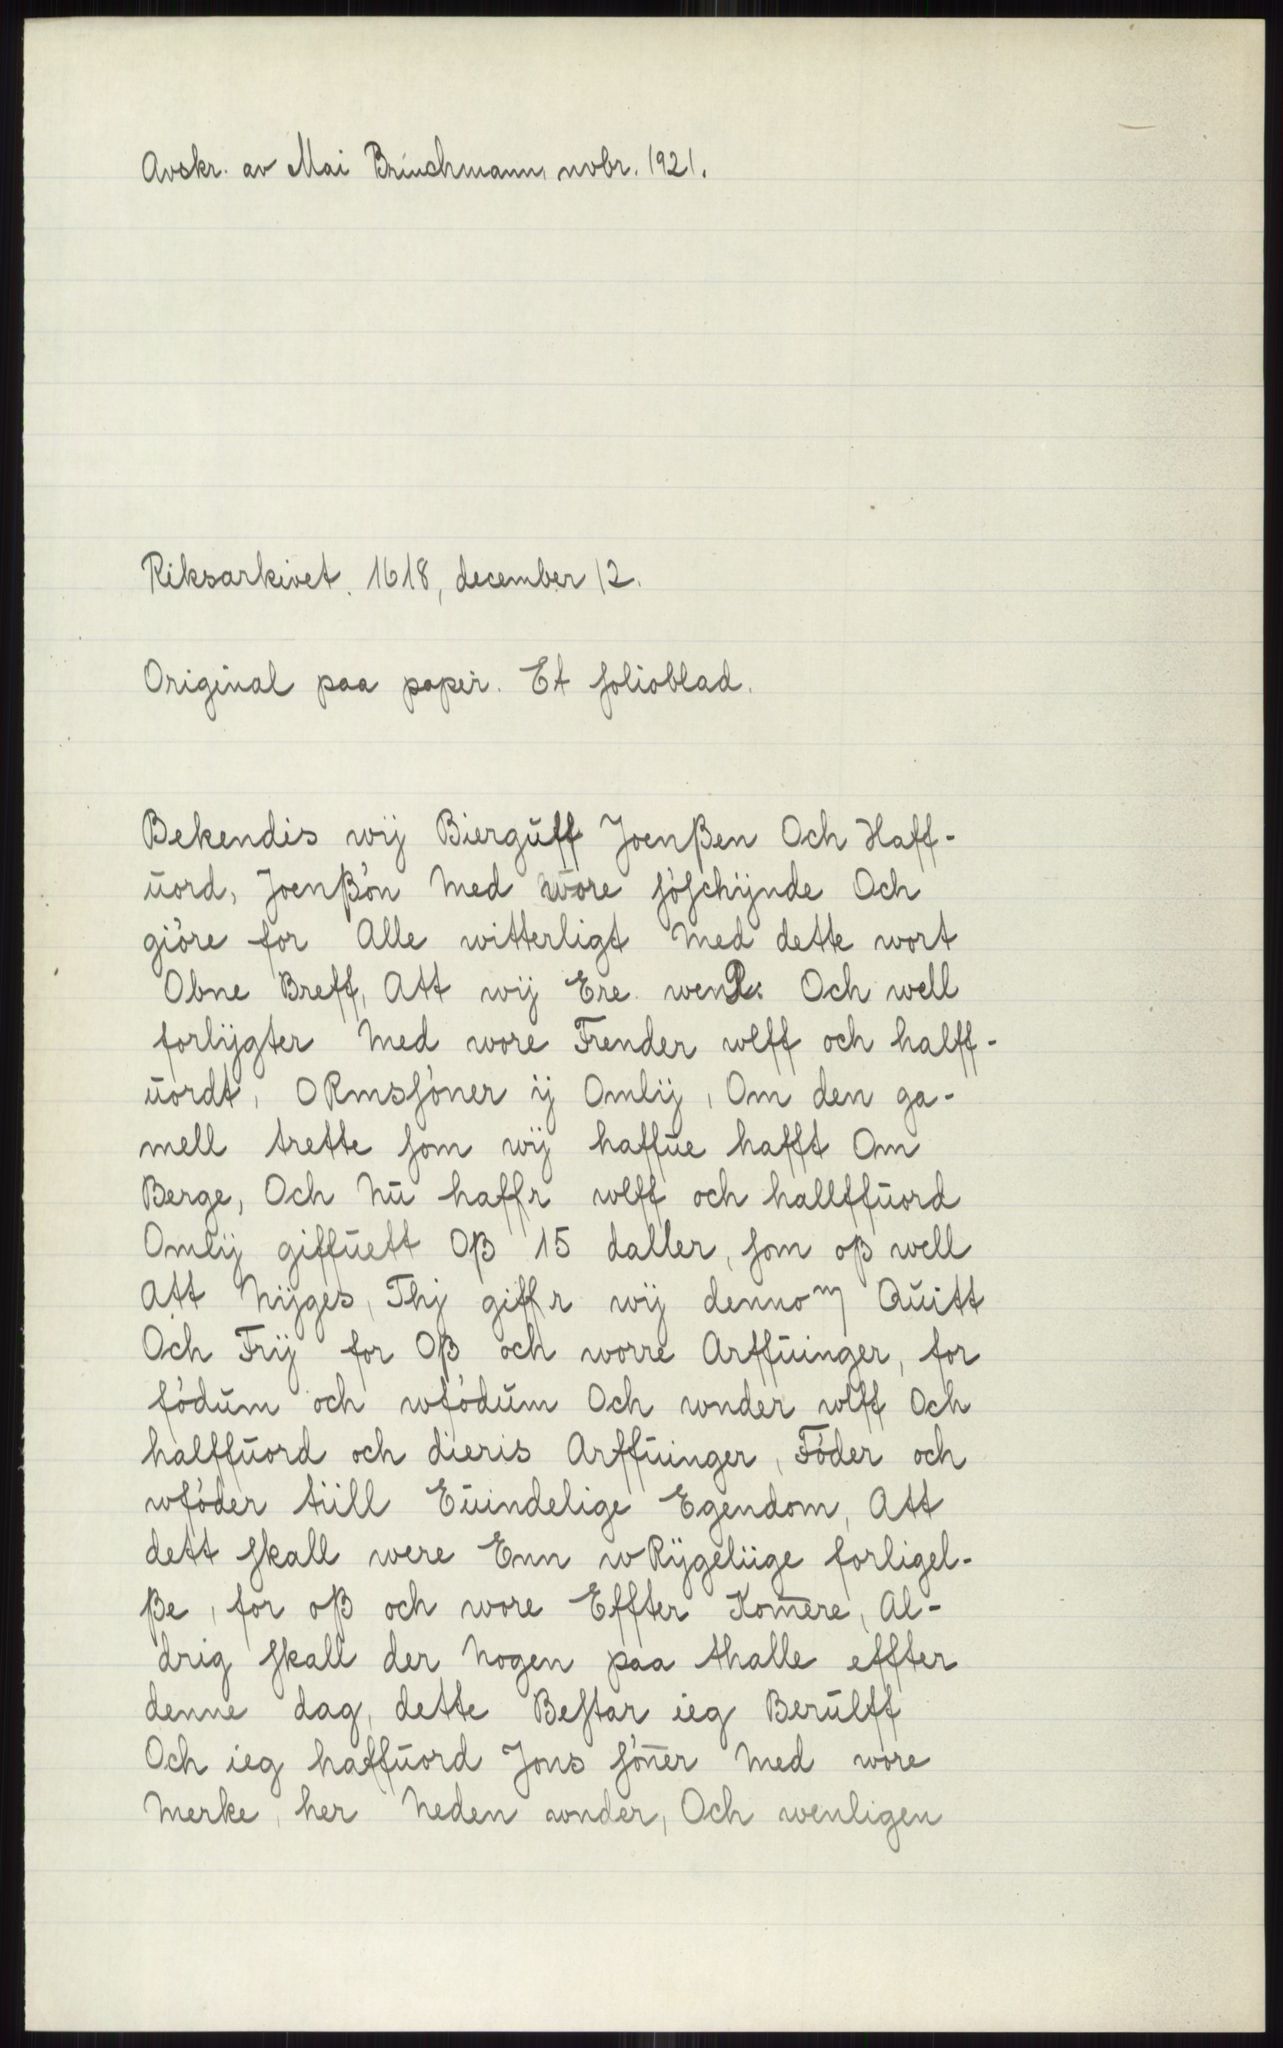 Avskr. av Mai Bruchmann, novbr. 1921.
Riksarkivet. 1618, december 12.
Original paa papir. Et folioblad.
Bekendis wij Bierguff Joenßen Och Haff-
uord, Joenßón Med wore sóschijnde Och
gióre for Alle witterligt Med dette wort
Obne Breff, Att wij Ere Och well
forlijgter Med wore Frender wlff och halff-
uordt, ORmssóner ij Omlij, Om den ga-
mell trette som wij haffue hafft Om
Berge, Och Nu haffr wlff och hallffuord
Omlij giffuett Oß 15 daller, som oß well
Att Nijges, Thj giffr wij dennom Quitt
Och Frij for Oß och worre Arffuinger, for
fódum och wfódum Och wnder wlff Och
halffuord och dieris Arffuinger, Fóder och
wfóder tiill Euindelige Egendom, Att
dett skall were Enn wRijgeliige forligel-
ße, for oß och wore Effter Kom̅ere, Al-
drig skall der Nogen paa thalle effter
denne dag, dette Bestar ieg Berulff
Och ieg haffuord Jons són̅er Med wore
Merke, her Neden wnder, Och wenligen